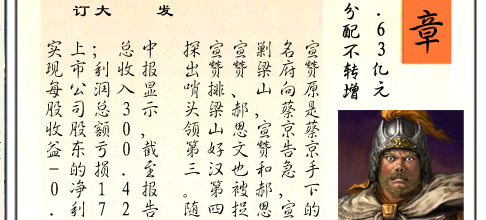 订大 发
章
.63亿元
分配不转增
宣赞原是蔡京手下的
名府向蔡京告急,宣
剿梁山,宣赞和郝思
宣赞、郝思文也被捉
宣赞排梁山好汉第四
探出哨头领第三。随
中报显示,截至报告
总收入30.42
;利润总额亏损17
上市公司股东的净利
实现每股收益-0.